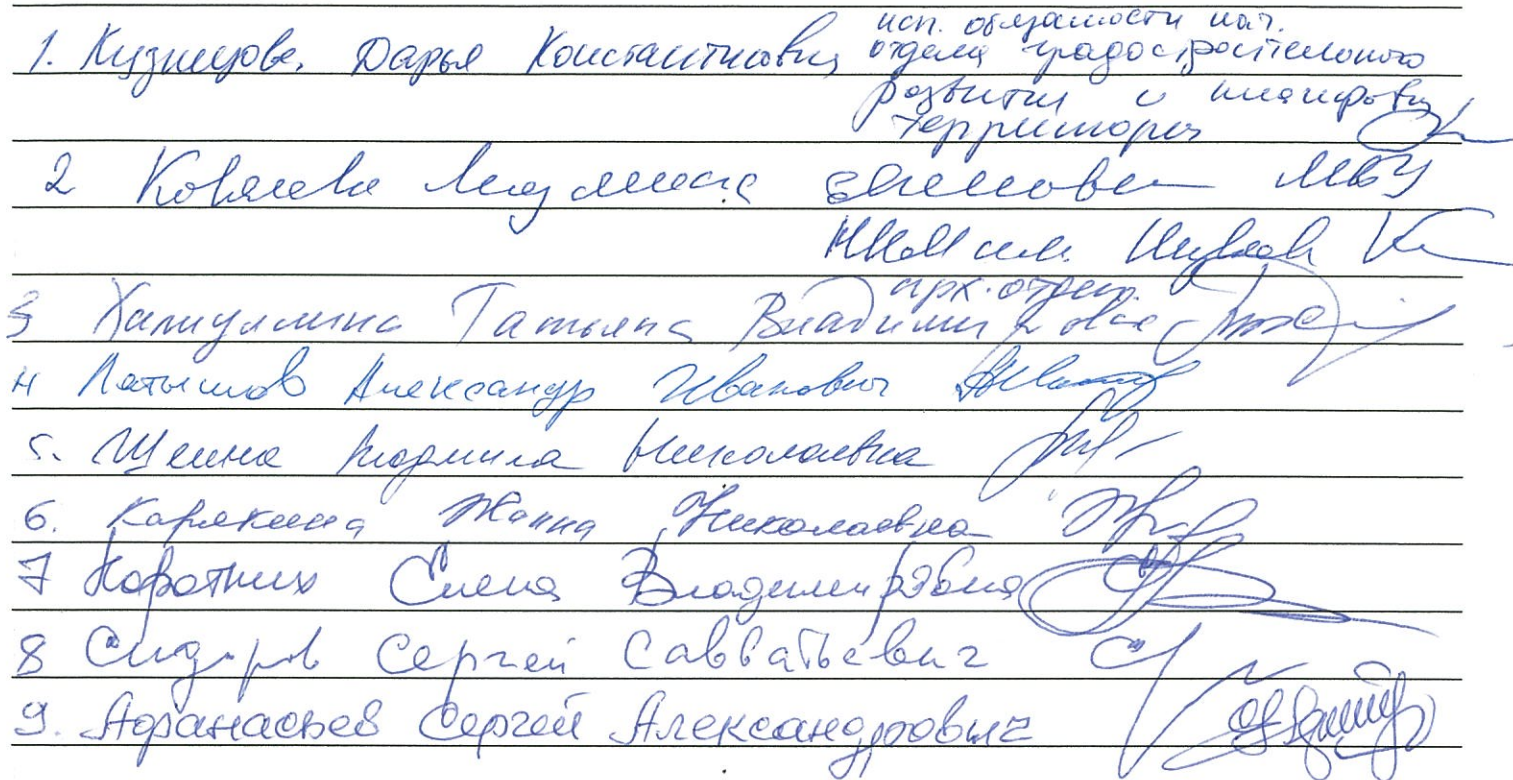 1. Кузнецова Дарья Константиновна исп. обязаности нач.
отдела градостроительного
развития и планировки
территории
2 Ковалева Людмила МБУ
им.
3 Халиуллина Татьяна Владимировна арх. отдел.
4 Латышов Александр Иванович
5. Щеина Людмила Николаевна
6. Карякина Жанна Николаевна
7 Коротких Елена Владимировна
8 Сидоров Сергей Савватьевич
9. Афанасьев Сергей Александрович